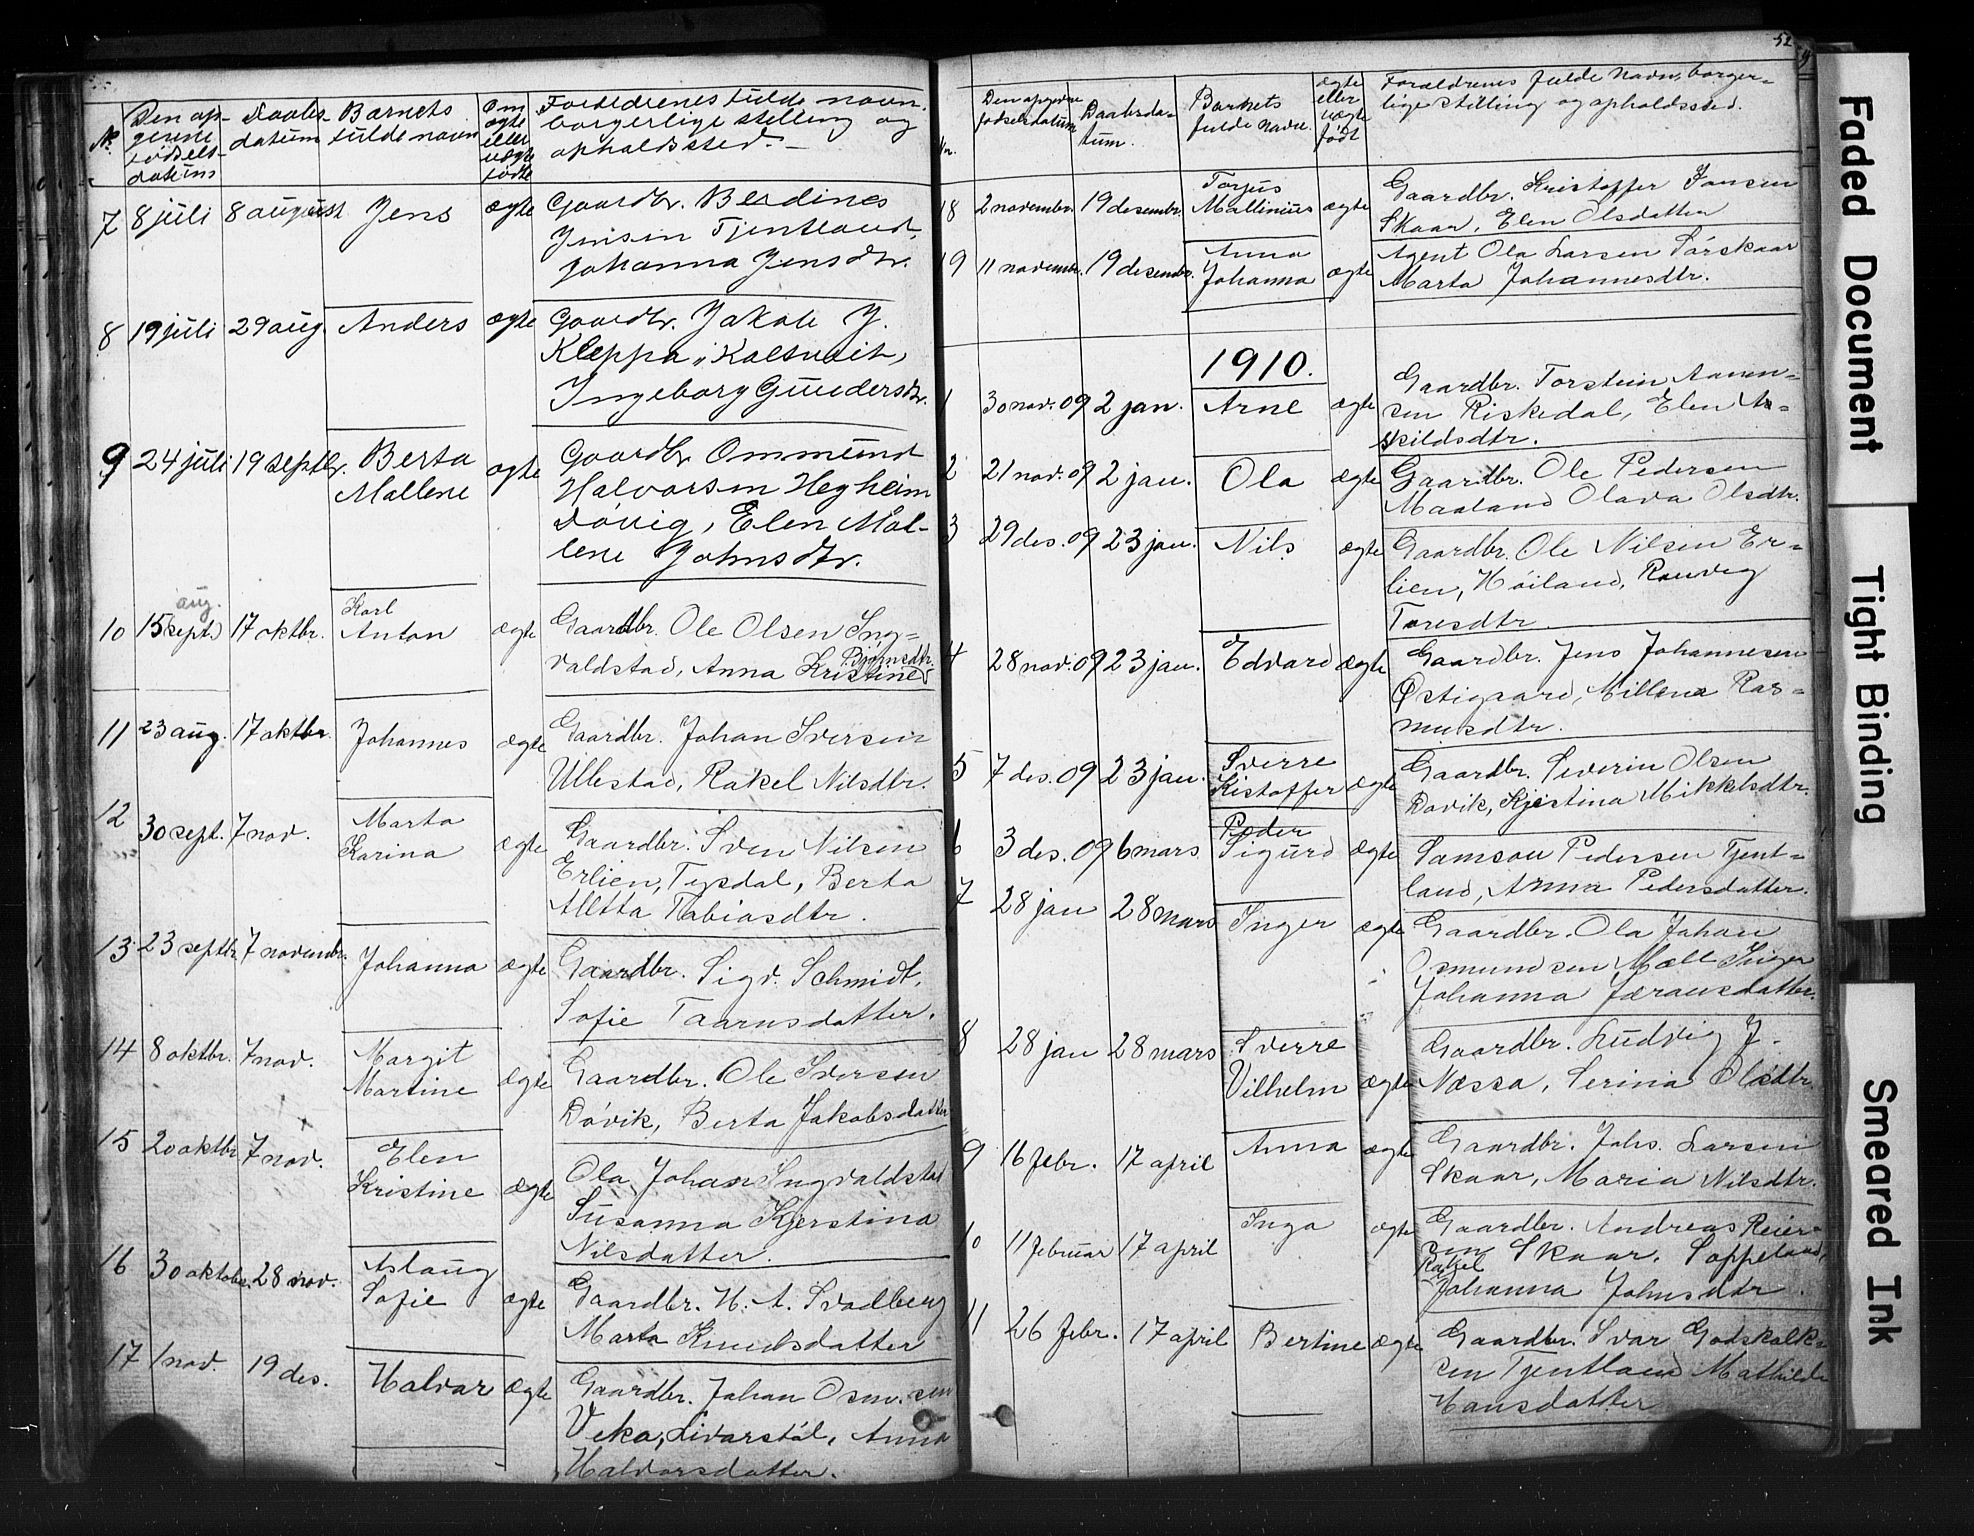 No.
Den op-
givne
fødsels-
datum
Daabs-
datum
Barnets
fulde navn
Om
ægte
eller
uægte
fødte
Forældrenes fulde navn,
borgerlige stilling og
opholdssted.
7 8 juli 8 august Jens ægte Gaardbr. Berdines
Jensen Tjentland,
Johanna Jensdtr.
8 19 juli 29 aug. Anders ægte Gaardbr. Jakob J.
Kleppa, Kaltveit,
Ingeborg Gundersdtr.
9 24 juli 19 septbr. Berta
Mallene ægte Gaardbr Ommund
Halvorsen Hegheim
Døvig, Elen Mal-
lene Johnsdtr.
10 15 sept. aug. 17 oktbr. Karl
Anton ægte Gaardbr. Ole Olsen Ing-
valdstad, Anna Kristine Bjørnsdtr.
11 23 aug. 17 oktbr. Johannes ægte Gaardbr. Johan Iversen
Ullestad, Rakel Nilsdtr.
12 30 sept. 7 nov. Marta
Karina ægte Gaardbr. Sven Nilsen
Erlien, Tysdal, Berta
Aletta Tobiasdtr.
13 23 septbr 7 novembr. Johanna ægte Gaardbr. Sigv. Schmidt,
Sofie Taarnsdatter.
14 8 oktbr. 7 nov. Margit
Martine ægte Gaardbr. Ole Iversen
Døvik, Berta Jakobsdatter
15 20 oktbr 7 nov. Elen
Kristine ægte Ola Johan Ingvaldstad
Susanna Kjerstina
Nilsdatter.
16 30 oktobr. 28 nov. Aslaug
Sofie ægte Gaardbr. H. A. Svadberg
Marta Knudsdatter
17 1 nov. 19 des. Halvar ægte Gaardbr. Johan Osm. sen
Veka, Livarstøl, Anna
Halvorsdatter.
52
Nr.
Den opgivne
fødselsdatum
Daabsda-
tum.
Barnets
fulde navn.
ægte
eller
uægte
født
Forældrenes fulde navn, borger-
lige stilling og opholdssted.
18 2 novembr. 19 desembr. Torjus
Mallinius ægte Gaardbr. Kristoffer Jansen
Skaar, Elen Olsdatter
19 11 novembr. 19 desembr. Anna
Johanna ægte Agent Ola Larsen Sørskaar
Marta Johannesdtr.
1910.
1 30 nov. 09 2 jan. Arne ægte Gaardbr. Torstein Aanen-
sen Riskedal, Elen As-
kildsdtr.
2 21 nov. 09 2 jan. Ola ægte Gaardbr. Ole Pedersen
Maaland Olava Olsdtr.
3 29 des. 09 23 jan. Nils ægte Gaardbr. Ole Nilsen Er-
lien, Høiland, Ranveg
Toresdtr.
4 28 nov. 09 23 jan. Edvard ægte Gaardbr. Jens Johannesen
Østigaard, Millena Ras-
musdtr.
5 7 des. 09 23 jan. Sverre
Kistoffer ægte Gaardbr. Severin Olsen
Dovik, Kjestina Mikkelsdtr.
6 3 des. 09 6 mars Peder
Sigurd ægte Samson Pedersen Tjent-
land, Anna Pedersdatter.
7 28 jan 28 mars Inger ægte Gaardbr. Ola Johan
Osmundsen Mæle Inger
Johanna Jøransdatter.
8 28 jan 28 mars Sverre
Vilhelm ægte Gaardbr. Ludvig J.
Næssa, Serina Olsdtr.
9 16 febr. 17 april Anna ægte Gaardbr. Johs. Larsen
Skaar, Maria Nilsdtr.
10 11 februar 17 april Inga ægte Gaardbr. Andreas Reier-
sen Skaar, Soppeland,
Rakel
Johanna Johnsdtr.
11 26 febr. 17 april Bertine ægte Gaardbr. Ivar Godskalk-
sen Tjentland Mathilde
Hansdatter
Faded Document
Tight Binding
Smeared Ink